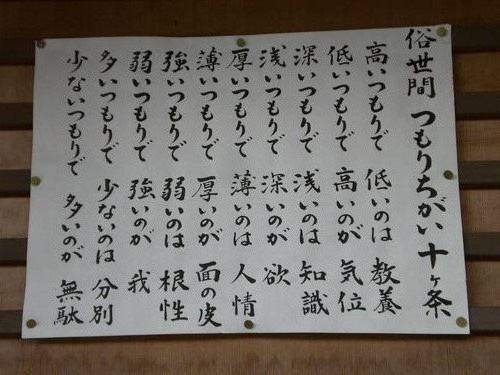 俗世間 つもりちがい 十ヶ条
高いつもりで 低いのは 教養
低いつもりで 高いのが 気位
深いつもりで 浅いのは 知識
浅いつもりで 深いのが 欲
厚いつもりで 薄いのは 人情
薄いつもりで 厚いのが 面の皮
強いつもりで 弱いのは 根性
弱いつもりで 強いのが 我
多いつもりで 少ないのは 分別
少ないつもりで 多いのが 無駄